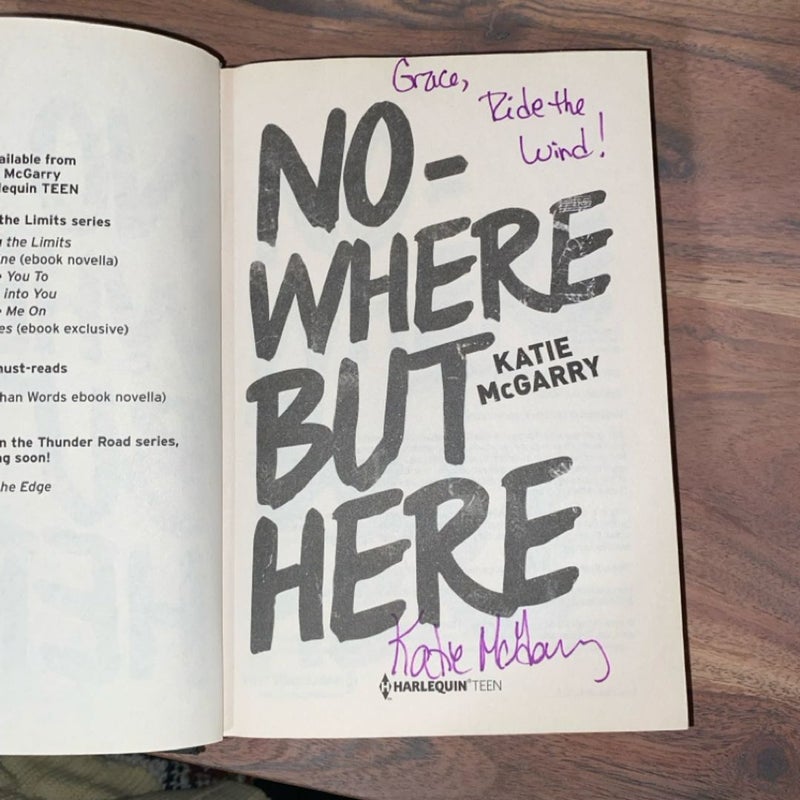 ailable from
McGarry
lequin TEEN
the Limits series
the Limits
ne (ebook novella)
You To
into You
Me On
es (ebook exclusive)
must-reads
han Words ebook novella)
n the Thunder Road series,
ng soon!
he Edge
Grace,
Ride the
Wind!
NO-
WHERE
BUT
HERE
KATIE
McGARRY
Katie McGarry
HARLEQUIN® TEEN